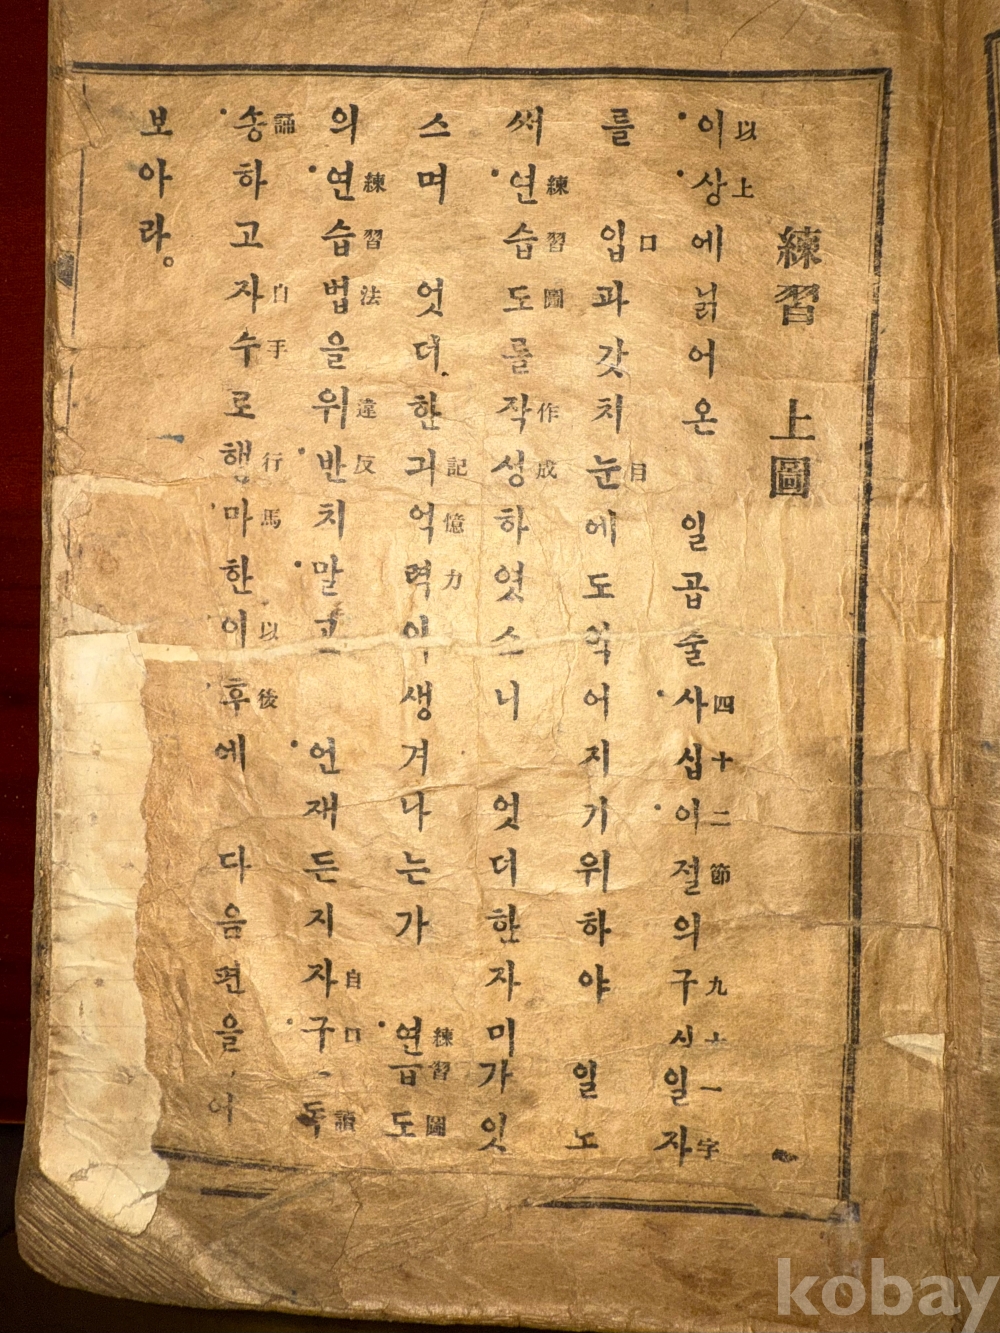 練習 上圖
이상에닑어온 일곱술사십이절의구십일자
以上 四十二節 九十一字
를 입과갓치눈에도익어지기위하야 일노
口 目
써연습도를작성하엿스니 엇더한자미가잇
練習圖 作成
스며 엇더한긔억력이생겨나는가 연습도
記憶力 練習圖
의연습법을위반치말고 언재든지자구 독
練習法 違反 自口 讀
송하고자수로행마한이후에 다음편을
誦 自手 行馬 以後
보아라。
kobay